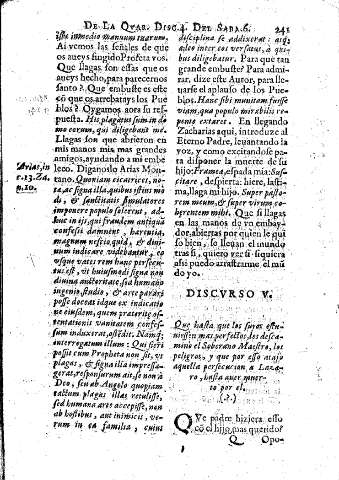 DE LA QVAR. DISC. 4. DEL SABA. 6. 241
isse in medio manuum tuarum.
Ai vemos las señales de que
aueys fingido Profeta vos.
Que llagas son estas que os
aueys hecho, para parecernos
santo? Que embuste es este
cō que os arrebatays los Pue
blos? Oygamos aora su res-
puesta. His plagatus sum in do
mo eorum, qui diligebant me.
Llagas son que abrieron en
mis manos mis mas grandes
amigos, ayudando a mi embe
leco. Diganoslo Arias Mon-
tano. Quoniam cicatrices, no-
ta, ac signa illa, quibus istius mo
di, & sanctitatis simulatores
imponere populo solerent, ad-
huc in ijs, qui fraudem antiquā
confessi damnent, hærentia,
magnum nescio, quid, & diui-
num indicare videbantur, eo
vsque vates rem hunc persecu-
tus est, vt huiusmodi signa non
diuina auctoritate, sed humano
ingenio, studio, & arte parari
posse doceat idque ex indicatio
ne eiusdem, quem præteritæ os-
tentationis vanitatem confes-
surum, asserit. Namq;
interrogatum illum: Qui fieri
possit cum Propheta non sit, vt
plagas, & signa illa impressa
gerat, responsurum ait, se non à
Deo, seu ab Angelo quopiam
tactum plagas illas retulisse,
sed humana artes accepisse, non
ab hostibus, aut inimicis, ve-
rum in ea familia, cuius
Arias, in
c. 13. Za.
n. 20.
disciplinæ se addixerat: atq;
adeo inter eos versatus, à qui-
bus diligebatur. Para que tan
grande embuste? Para admi-
rar, dize este Autor, para lle-
uarse el aplauso de los Pue-
blos. Hanc sibi munitam fuisse
viam, qua populo mirabilis re-
pente extaret. En llegando
Zacharias aqui, introduze al
Eterno Padre, leuantando la
voz, y como excitandose pa-
ra disponer la muerte de su
hijo: Framea, espada mia: Sus-
citare, despierta: hiere, lasti-
ma, llaga mi hijo. Super pasto-
rem meum, & super virum co-
hærentem mihi. Que si llagas
en las manos de vn embay-
dor, abiertas por quien le qui
so bien, so lleuan el mundo
tras si, quiero ver si siquiera
assi puedo arrastrarme el mū
do yo.
DISCVRSO V.
Que hasta que los suyos estu-
uiessen mas perfectos, los descā-
minò el Soberano Maestro, los
peligros, y que por esso atajo
aquella persecucion a Laza-
ro, hasta auer muer-
to por el.
(.?.)
QVe padre hiziera esso
cō el hijo mas querido?
Q Opo-